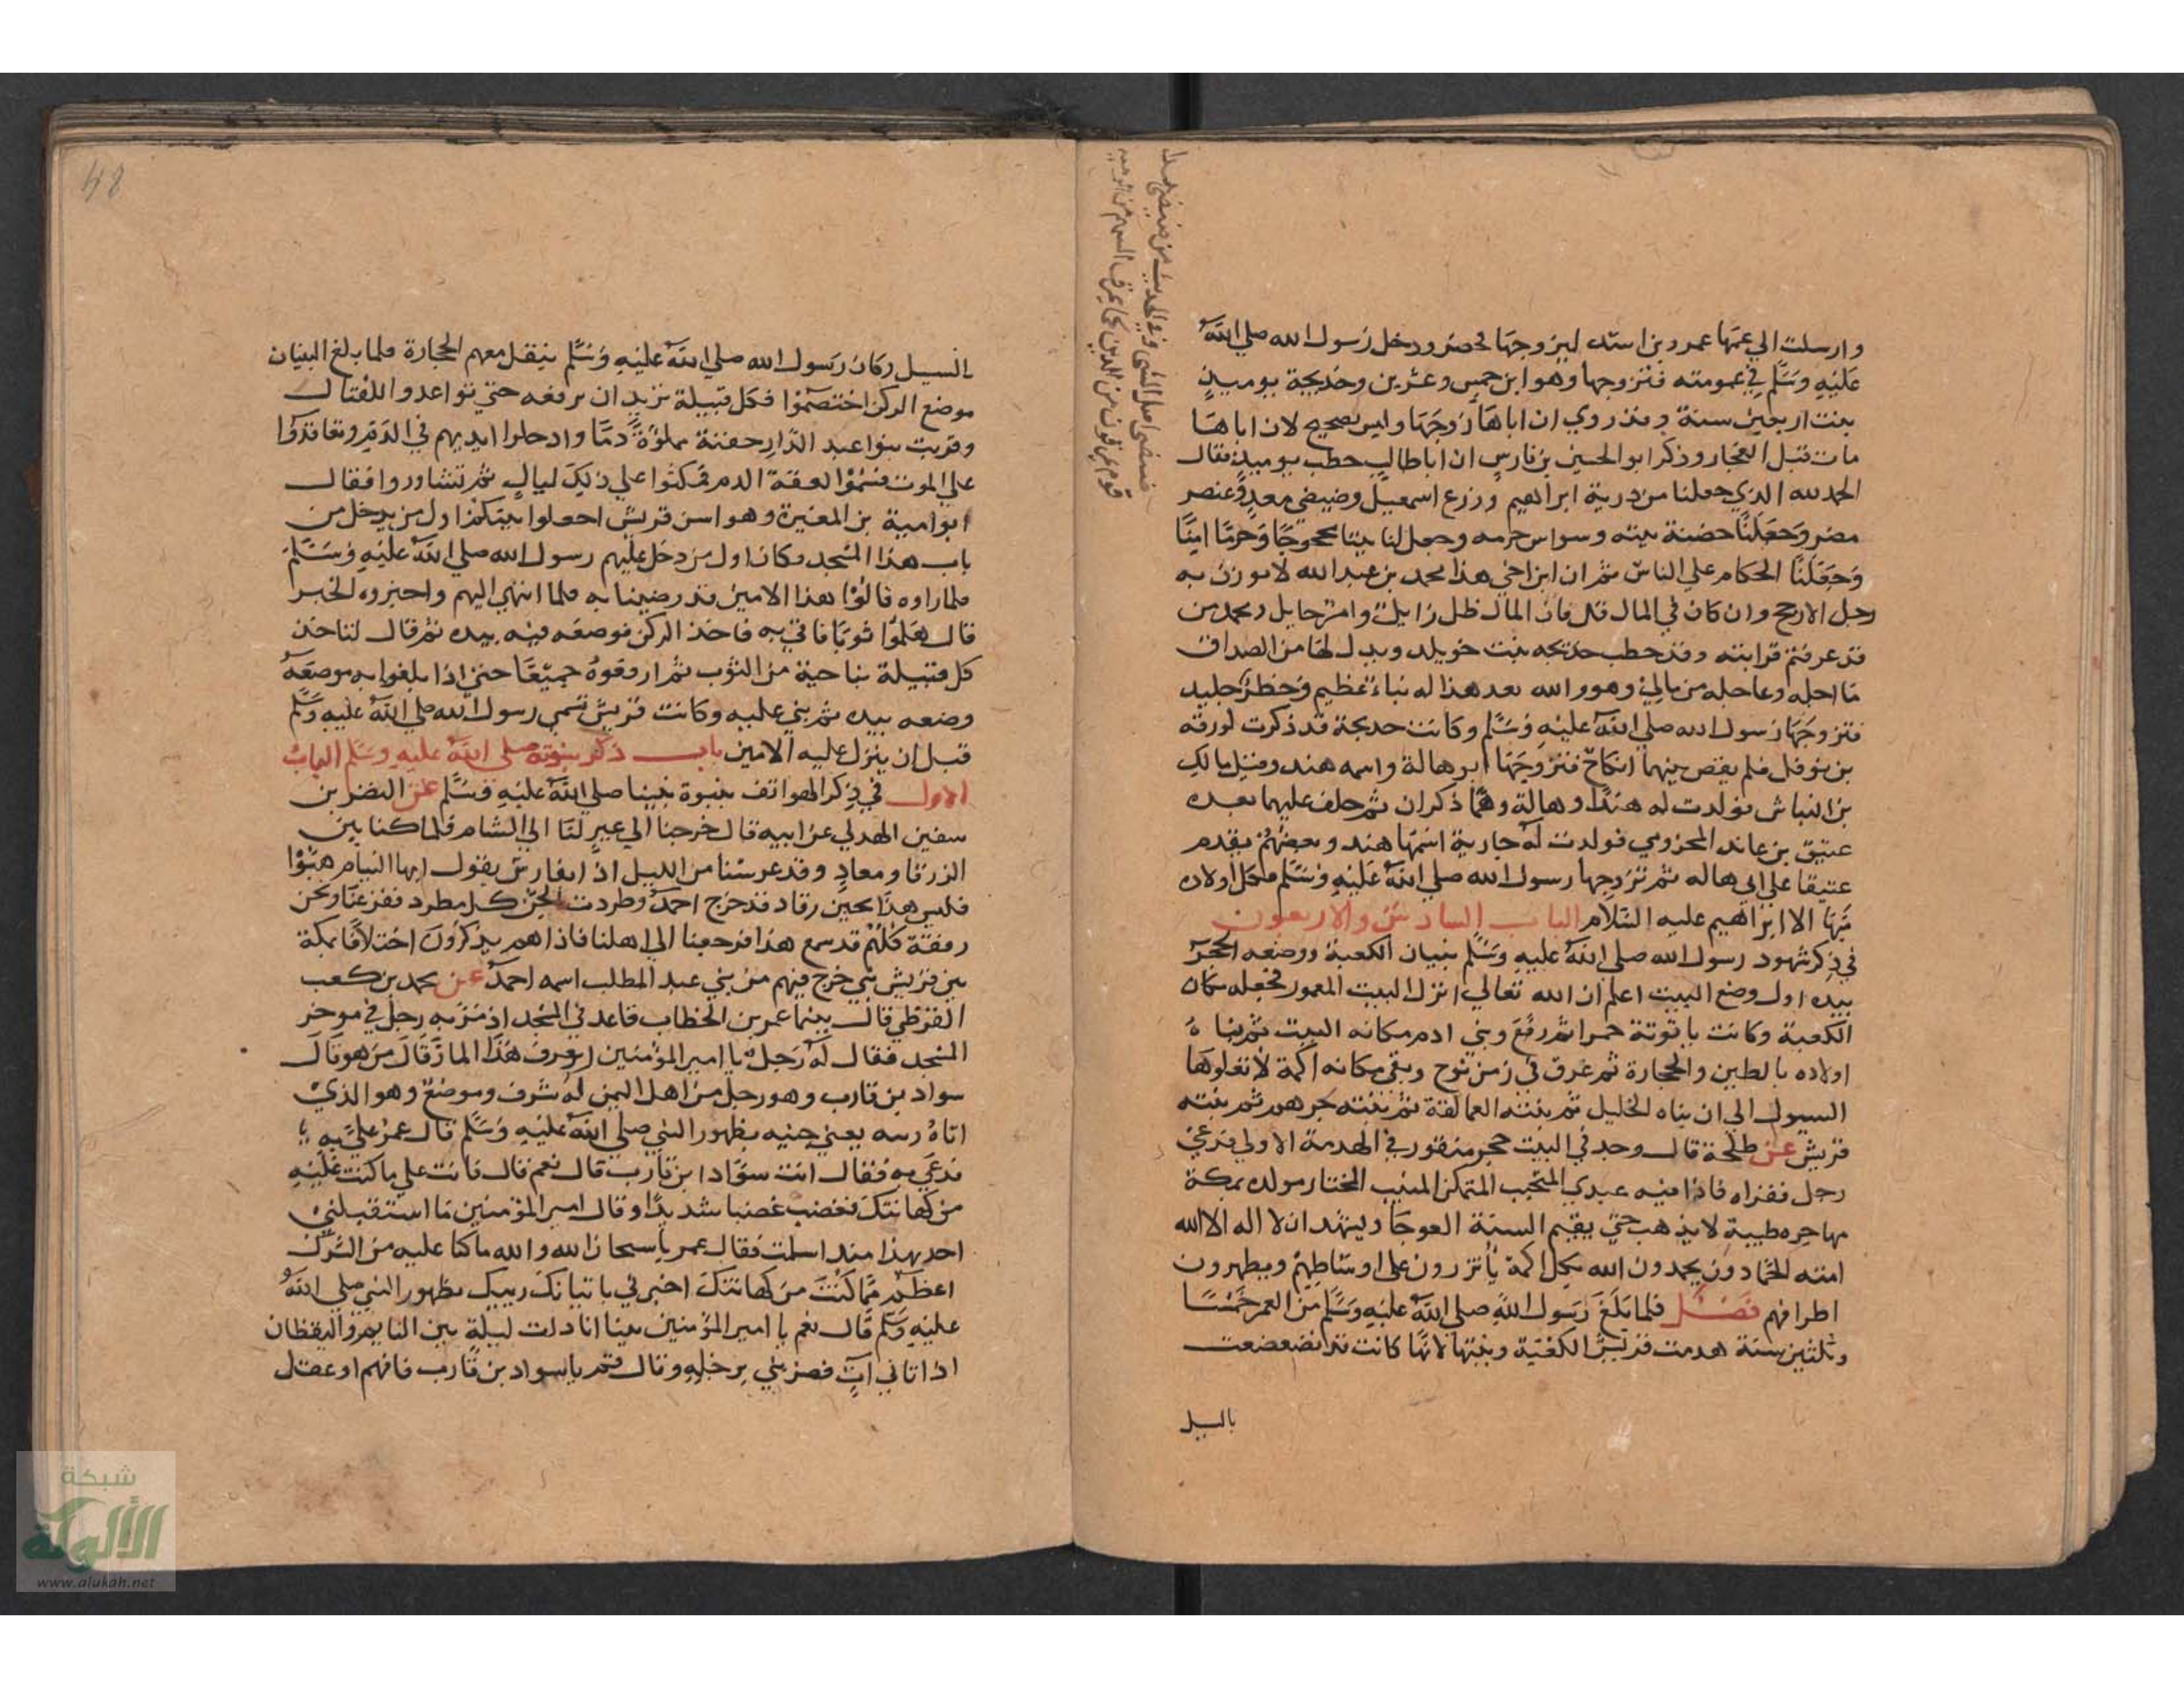 وارسلت الي عمها عمرو بن اسد ليزوجها فحضر ودخل رسول الله صلي الله
عليه وسلم في عمومته فتزوجها وهو ابن خمس وعشرين وخديجة يوميذ
بنت اربعين سنة وقد روي ان اباها زوجها وليس بصحيح لان اباها
مات قبل الفجار وذكر ابو الحسين بن فارس ان ابا طالب خطب يوميذ فقال
الحمد لله الذي جعلنا من ذرية ابراهيم وزرع اسمعيل وضيضي معد وعنصر
مضر وجعلنا حضنة بيته وسواس حرمه وجعل لنا بيتا محجوجا وحرما امنا
وجعلنا الحكام علي الناس ثم ان ابن اخي هذا محمد بن عبد الله لا يوزن به
رجل الا رجح وان كان في المال قل فان المال ظل زايل وامر حايل ومحمد من
قد عرفتم قرابته وقد خطب خديجه بنت خويلد وبذل لها من الصداق
ما اجله وعاجله من مالي وهو والله بعد هذا له نباء عظيم وخطر جليل
فتزوجها رسول الله صلي الله عليه وسلم وكانت خديجة قد ذكرت لورقه
بن نوفل فلم يقض بينهما انكاح فتزوجها ابو هالة واسمه هند وقيل مالك
بن النباش فولدت له هندا وهالة وهما ذكران ثم خلف عليها بعده
عتيق بن عائد المخزومي فولدت له جارية اسمها هند وبعضهم يقدم
عتيقا علي ابي هاله ثم تزوجها رسول الله صلي الله عليه وسلم فكل اولاده
منها الا ابراهيم عليه السلام الباب السادس والاربعون
في ذكر شهود رسول الله صلي الله عليه وسلم بنيان الكعبة ووضعه الحجر
بيده اول وضع البيت اعلم ان الله تعالي انزل البيت المعمور فجعله مكان
الكعبة وكانت ياقوتة حمرا ثم رفع وبني ادم مكانه البيت ثم بناه
اولاده بالطين والحجارة ثم غرق في زمن نوح وبقي مكانه اكمة لا تعلوها
السيول الي ان بناه الخليل ثم بنته العمالقة ثم بنته جرهم ثم بنته
قريش عن طلحة قال وجد في البيت حجر منقور في الهدمة الاولي فدعي
رجل فقراه فاذا فيه عبدي المنتجب المتمكن المنيب المختار مولده بمكة
مهاجره طيبة لا يذهب حتي يقيم السنة العوجا ويشهد ان لا اله الا الله
امته الحمادون يحمدون الله بكل اكمة يأتزرون علي اوساطهم ويطهرون
اطرافهم فصل فلما بلغ رسول الله صلي الله عليه وسلم من العمر خمسا
وثلثين سنة هدمت قريش الكعبة وبنتها لانها كانت قد تضعضعت
بالسيل
السيل وكان رسول الله صلي الله عليه وسلم ينقل معهم الحجارة فلما بلغ البنيان
موضع الركن اختصموا فكل قبيلة تريد ان ترفعه حتي تواعدوا للقتال
وقربت بنوا عبد الدار جفنة مملوءة دما وادخلوا ايديهم في الدم وتعاقدوا
علي الموت فسموا لعقة الدم فمكثوا علي ذلك ليالٍ ثم تشاوروا فقال
ابو امية بن المغيرة وهو اسن قريش اجعلوا بينكم اول من يدخل من
باب هذا المسجد فكان اول من دخل عليهم رسول الله صلي الله عليه وسلم
فلما راوه قالوا هذا الامين قد رضينا به فلما انتهي اليهم واخبروه الخبر
قال هلموا ثوبا فاتي به فاخذ الركن فوضعه فيه بيده ثم قال لتاخذ
كل قبيلة بناحية من الثوب ثم ارفعوه جميعا حتي اذا بلغوا به موضعه
وضعه بيده ثم بني عليه وكانت قريش تسمي رسول الله صلي الله عليه وسلم
قبل ان ينزل عليه الامين باب ذكر نبوته صلي الله عليه وسلم الباب
الاول في ذكر الهواتف بنبوة نبينا صلي الله عليه وسلم عن النضر بن
سفين الهذلي عن ابيه قال خرجنا الي عير لنا الي الشام فلما كنا بين
الزرقا ومعاد وقد عرسنا من الليل اذا بفارس يقول ايها النيام هبوا
فليس هذا بحين رقاد قد خرج احمد وطردت الجن كل مطرد ففزعنا ونحن
رفقة كلهم قد سمع هذا فرجعنا الي اهلنا فاذا هم يذكرون اختلافا بمكة
بين قريش بنبي خرج فيهم من بني عبد المطلب اسمه احمد عن محمد بن كعب
القرظي قال بينما عمر بن الخطاب قاعد في المسجد اذ مر به رجل في موخر
المسجد فقال له رجل يا امير المؤمنين اتعرف هذا المار قال من هو قال
سواد بن قارب وهو رجل من اهل اليمن له شرف وموضع وهو الذي
اتاه رييه يعني جنيه بظهور النبي صلي الله عليه وسلم قال عمر علي به
فدعي به فقال انت سواد ابن قارب قال نعم قال فانت علي ما كنت عليه
من كهانتك فغضب غضبا شديدا وقال امير المؤمنين ما استقبلني
احد بهذا منذ اسلمت فقال عمر يا سبحان الله والله ما كنا عليه من الشرك
اعظم مما كنت من كهانتك اخبرني باتيانك رييك بظهور النبي صلي الله
عليه وسلم قال نعم يا امير المؤمنين بينا انا ذات ليلة بين النايم واليقظان
اذ اتاني آتٍ فضربني برجله وقال قم يا سواد بن قارب فافهم او عقل
48
شبكة
الألوكة
www.alukah.net